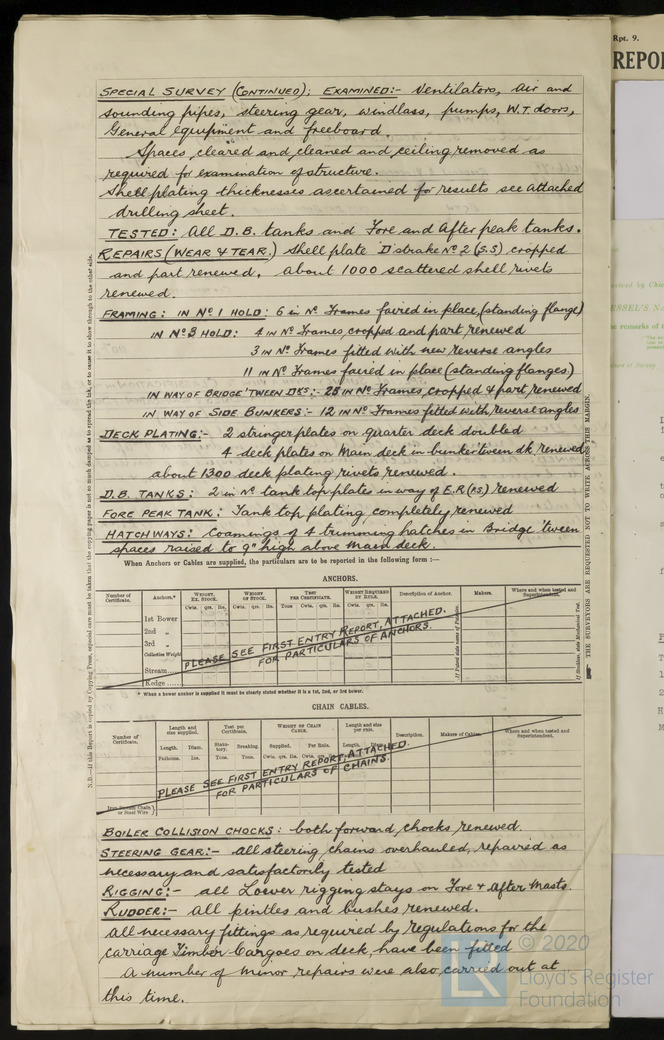 SPECIAL SURVEY (CONTINUED); EXAMINED:- Ventilators, air and
sounding pipes, steering gear, windlass, pumps, W.T. doors,
General equipment and freeboard.
Spaces cleared and cleaned and ceiling removed as
required for examination of structure.
Shell plating thicknesses ascertained for results see attached
drilling sheet.
TESTED: All D.B. tanks and Fore and After peak tanks.
REPAIRS (WEAR & TEAR.) Shell plate 'D' strake No 2 (S.S) cropped
and part renewed. about 1000 scattered shell rivets
renewed.
FRAMING: IN No 1 HOLD: 6 in No Frames faired in place, (standing flange)
IN No 3 HOLD: 4 in No Frames, cropped and part renewed
3 in No Frames fitted with new reverse angles
11 in No Frames faired in place (standing flanges)
IN WAY OF BRIDGE 'TWEEN DKS:- 25 IN No Frames, cropped & part renewed
IN WAY OF SIDE BUNKERS:- 12 IN No Frames fitted with reverse angles
DECK PLATING:- 2 stringer plates on quarter deck doubled
4 deck plates on Main deck in bunker 'tween dk, renewed
about 1300 deck plating rivets renewed.
D.B. TANKS: 2 in No tank top plates in way of E.R (P.S) renewed
FORE PEAK TANK: Tank top plating completely renewed
HATCHWAYS: Coamings of 4 trimming hatches in Bridge 'tween
spaces raised to 9" high above Main deck.
When Anchors or Cables are supplied, the particulars are to be reported in the following form :—
ANCHORS.
Number of Certificate. Anchors.* WEIGHT. EX. STOCK. WEIGHT OF STOCK. TEST PER CERTIFICATE. WEIGHT REQUIRED BY RULE. Description of Anchor. Makers. Where and when tested and Superintendent.
Cwts. qrs. lbs. Cwts. qrs. lbs. Tons Cwts. qrs. lbs. Cwts. qrs. lbs.
1st Bower
2nd "
3rd "
Collective Weight
Stream
Kedge
PLEASE SEE FIRST ENTRY REPORT, ATTACHED.
FOR PARTICULARS OF ANCHORS.
* When a bower anchor is supplied it must be clearly stated whether it is a 1st, 2nd, or 3rd bower.
CHAIN CABLES.
Number of Certificate. Length and size supplied. Test per Certificate. WEIGHT OF CHAIN CABLE. Length and size per rule. Description. Makers of Cables. Where and when tested and Superintendent.
Length. Diam. Statutory. Breaking. Supplied. Per Rule. Length. Diam.
Fathoms. Ins. Tons. Tons. Cwts. qrs. lbs. Cwts. qrs. lbs.
PLEASE SEE FIRST ENTRY REPORT, ATTACHED.
FOR PARTICULARS OF CHAINS.
or Steel Wire
BOILER COLLISION CHOCKS: both forward, chocks renewed.
STEERING GEAR:- all steering chains overhauled, repaired as
necessary and satisfactorily tested
RIGGING:- all Lower rigging stays on Fore & After Masts
RUDDER:- all pintles and bushes renewed.
all necessary fittings as required by regulations for the
carriage Timber Cargoes on deck, have been fitted
A number of minor repairs were also carried out at
this time.
THE SURVEYORS ARE REQUESTED NOT TO WRITE ACROSS THIS MARGIN.
Rpt. 9.
REPO
© 2020
LR
Lloyd's Register
Foundation